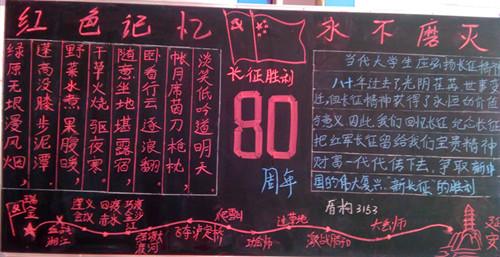 红色记忆 永不磨灭
绿原无垠漫风烟，
蓬高没膝步泥潭。
野菜水煮果腹暖，
干草火烧驱夜寒。
随意坐地堪露宿，
卧看行云逐浪翻。
帐月席茵刀枪枕，
淡笑低吟道明天。
长征胜利
80
周年
当代大学生应弘扬长征精神
八十年过去了，光阴荏苒，世事变
迁，但长征精神获得了永恒的价值
与意义。因此，我们回忆长征，纪念长征
把红军长征留给我们宝贵精神
财富一代一代传下去，争取新中
国的伟大复兴，新长征的胜利
盾构3153
瑞金
血战湘江
遵义会议
四渡赤水
巧渡金沙江
强渡大渡河
飞夺泸定桥
爬雪山
过草地
激战腊子口
大会师